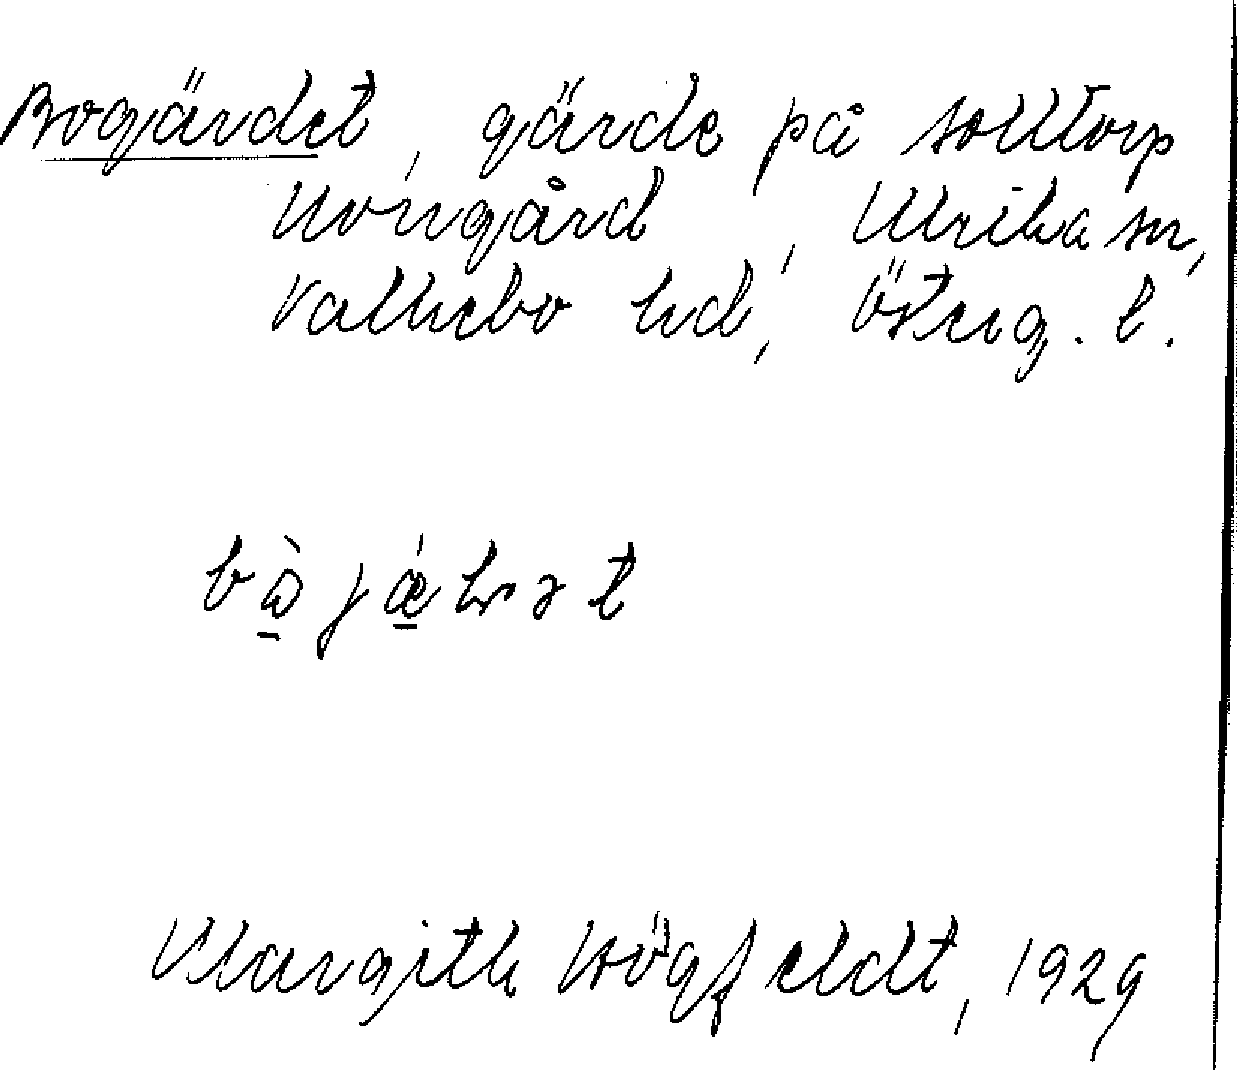 Bogärdet, gärde på Solltorp
Norrgård, Ulrika sn,
Valkebo hd, Österg. l.
Margith Högfeldt, 1929